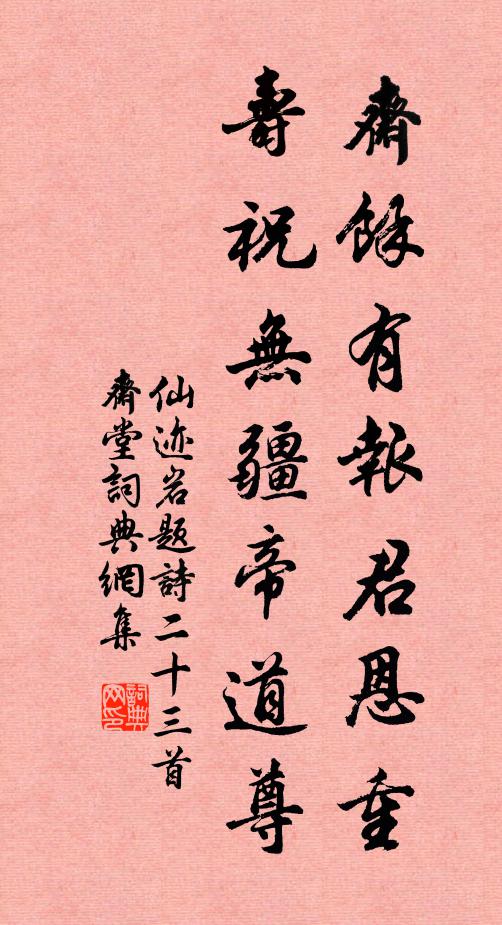 齋餘有報君恩重
壽祝無疆帝道尊
仙迹岩題詩二十三首
齋堂詞典網集
詞典网印